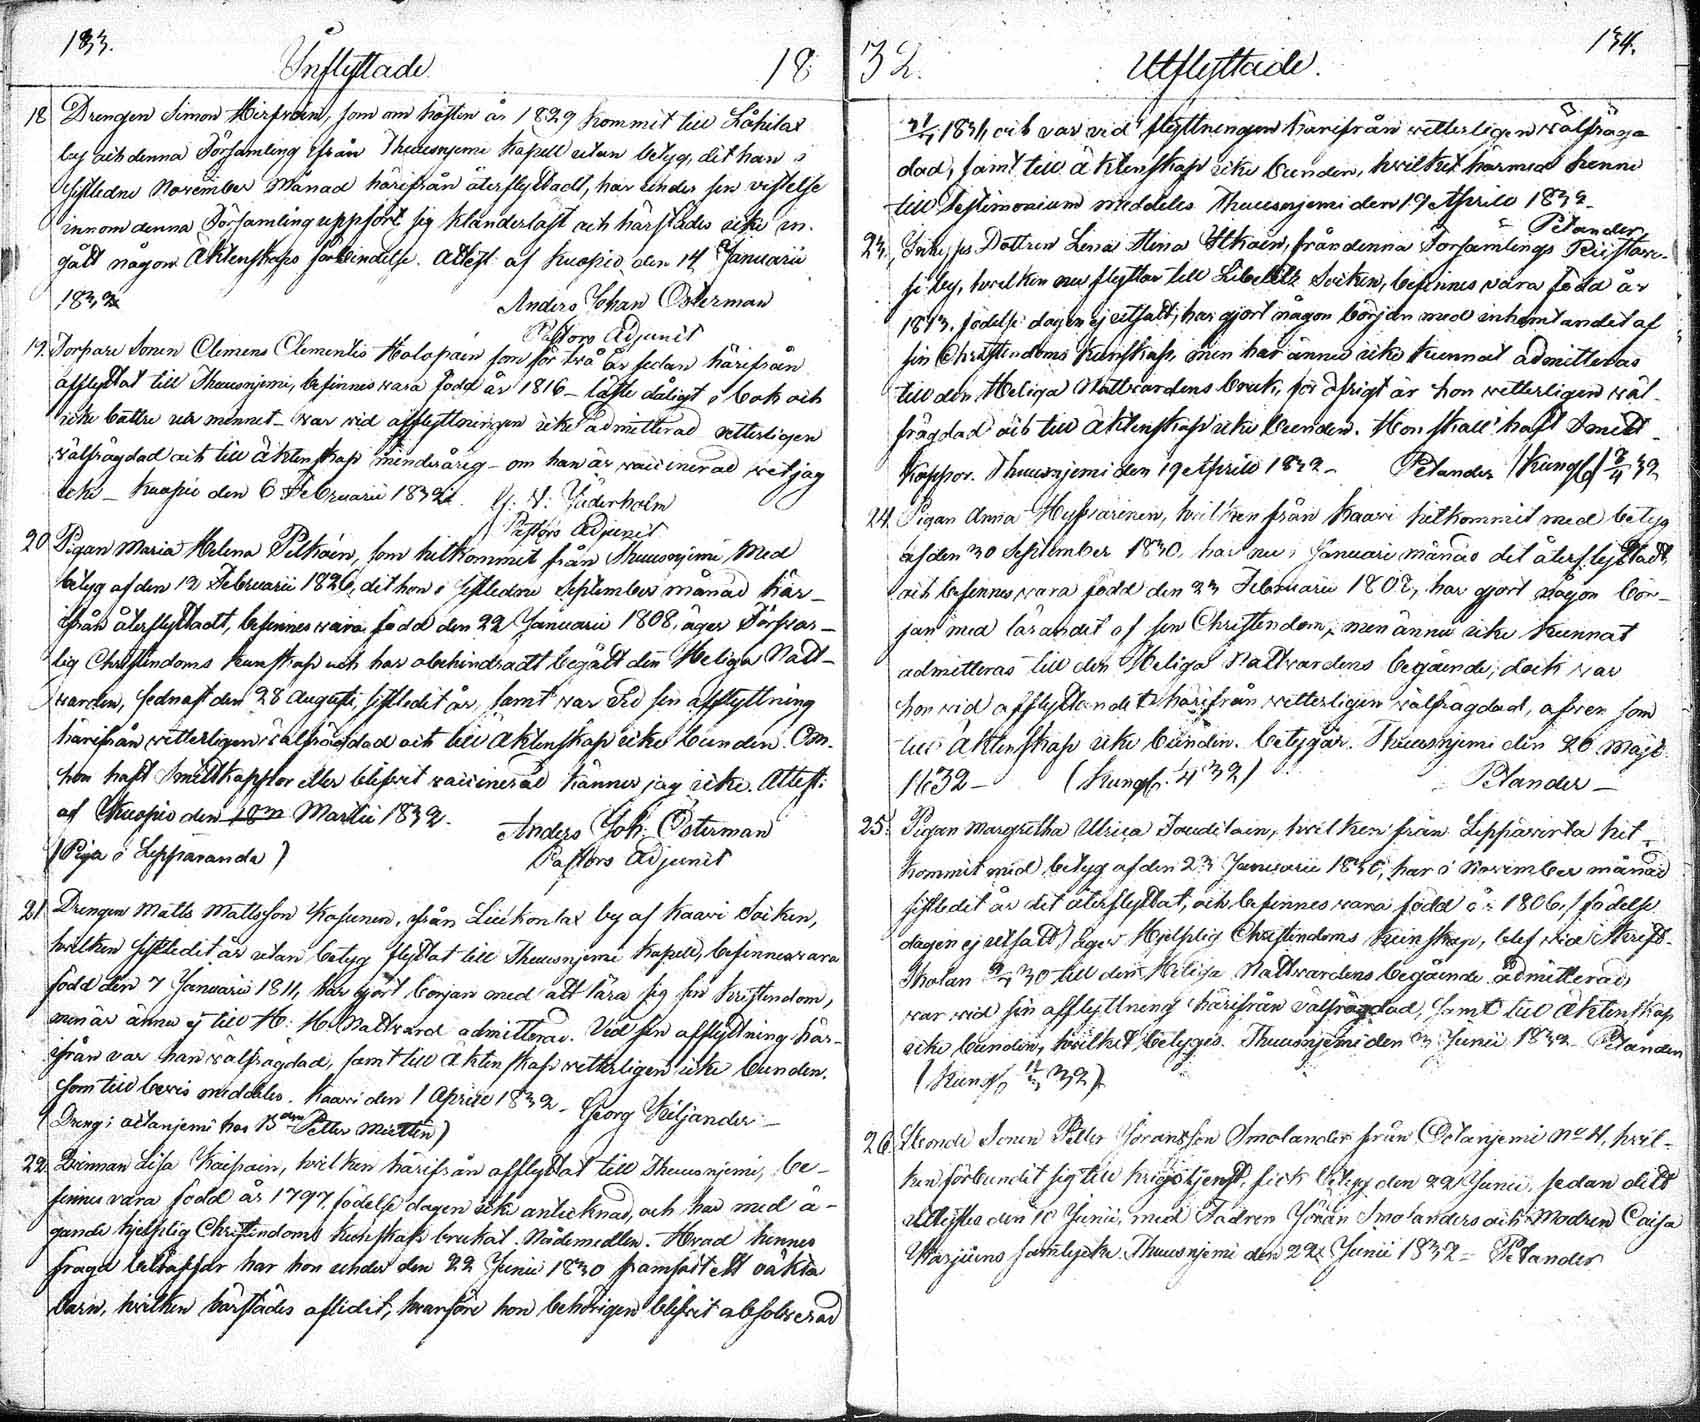 133.
Inflyttade
18
18 Drengen Simon Hirfvoin, som om hösten år 1829 kommit till Låkilax
by och denna Församling ifrån Thuusnjemi Kapell utan betyg, dit han i
sistledne November Månad härifrån återflyttadt, har under sin vistelse
innom denna Församling uppfört sig klanderlöst och härstädes icke in-
gått någon Äktenskaps förbindelse. Attest: af Kuopio den 14 Januarii
1832
Anders Johan Österman
Pastors Adjunct
19. Torpare Sonen Clemens Clementis Holopain som för två år sedan härifrån
afflyttat till Thuusnjemi, befinnes vara född år 1816 – läste dåligt i bok och
icke bättre ur minnet – var vid afflyttningen icke admitterad vetterligen
välfrägdad och till äktenskap minderårig – om han är vaccinerad vet jag
icke – Kuopio den 6 Februarii 1832.
Pastors Adjunct
20 Pigan Maria Helena Pitkäin, som hitkommit från Thuusnjemi, Med
betyg af den 12 Februarii 1826, dit hon i sistledne September månad här-
ifrån återflyttadt, befinnes vara född den 22 Januarii 1808, äger Försvar-
lig Christendoms kunskap och har obehindradt begått den Heliga Natt-
varden, sednast den 28 Augusti, sistledit år, samt var vid sin afflyttning
härifrån vetterligen välfrägdad och till Äktenskap icke bunden. Om
hon haft Smittkoppor eller blefvit vaccinerad känner jag icke. Attest:
af Kuopio den 18 Martii 1832.
Anders Joh: Österman
(Piga i Lepparanda)
Pastors Adjunct
21 Drengen Matts Mattsson Kosunen, från Liukonlax by af Kaavi Soiken,
hvilken sistledit år utan betyg flyttat till Thuusnjemi Kapell, befinnes vara
född den 7 Januarii 1811, har gjort början med att lära sig sin Kristendom,
men är ännu ej till H. H. Nattvard admitterad. Vid sin afflyttning här-
ifrån var han välfrägdad, samt till Äktenskap vetterligen icke bunden.
Som till bevis meddelas. Kaavi den 1 Aprill 1832 – Georg Kiljander –
(Dreng i Otanjemi hos Petter Miettin)
22. Qvinnan Lisa Kaipain, hvilken härifrån afflyttat till Thuusnjemi, be-
finnes vara född år 1797, födelse dagen icke anteknad, och har med ä-
gande hjelplig Christendoms kunskap brukat Nådemedlen. Hvad hennes
frägd beträffar har hon under den 22 Junii 1830 framfödt ett oäkta
barn, hvilken härstädes aflidit, hvarföre hon behörigen blifvit absolverad
134.
32.
Utflyttade.
1831, och var vid flyttningen härifrån vetterligen välfräg-
dad, samt till Äktenskap icke bunden, hvilket härmed henne
till Testimonium meddeles Thuusnjemi den 19 Aprill 1832 –
Pelander
23. Dottren Lena Stina Itkoin, från denna Församlings
by, hvilken nu flyttar till Libelitz Soiken, befinnes vara född år
1813, födelse dagen ej utsatt, har gjort någon början med inhemtandet af
sin Christendoms Kunskap, men har ännu icke kunnat admitteras
till den Heliga Nattvardens bruk, för öfrigt är hon vetterligen väl-
frägdad och till Äktenskap icke bunden. Hon skall haft Smitt-
koppor. Thuusnjemi den 19 Aprill 1832 – Pelander
24. Pigan Anna Hyfvärinen, hvilken från Kaavi hitkommit med betyg
af den 30 September 1830, har nu i Januari månad dit återflyttadt,
och befinnes vara född den 23 Februarii 1807, har gjort någon bör-
jan med lärandet af sin Christendom, men ännu icke kunnat
admitteras till den Heliga Nattvardens begående, dock var
hon vid afflyttandet härifrån vetterligen välfrägdad, äfven som
till Äktenskap icke bunden. betygar. Thuusnjemi den 20 Maji
1832 –
Pelander –
25: Pigan Margretha Ulrica Jauhilain, hvilken från Leppävirta hit-
kommit med betyg af den 23 Januarii 1830, har i November månad
sistledit år dit återflyttat, och befinnes vara född år 1806, (födelse
dagen ej utsatt) äger Hjelplig Christendoms kunskap, blef vid Skrift-
skolan 30 till den Heliga Nattvardens begående admitterad,
var vid sin afflyttning härifrån välfrägdad, samt till Äktenskap
icke bunden, hvilket betygas. Thuusnjemi den 3 Junii 1832 – Pelander
26. Bonde Sonen Petter Göransson Smolander från Otanjemi No 4, hvil-
ken förbundit sig till krigstjenst, fick betyg den 22 Junii, sedan ditt
utlystes den 10 Junii, med Fadren Göran Smolanders och Modren Caisa
Karjuins samtycke. Thuusnjemi den 22 Junii 1832 – Pelander